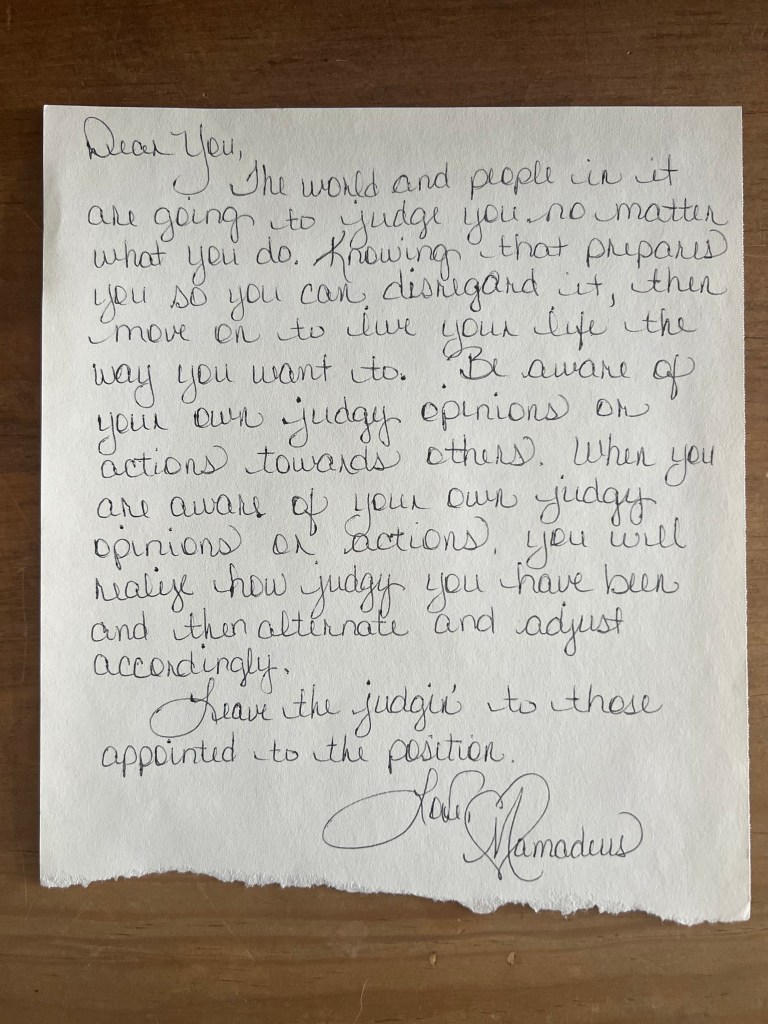 Dear You,
The world and people in it
are going to judge you no matter
what you do. Knowing that prepares
you so you can disregard it, then
move on to live your life the
way you want to. Be aware of
your own judgy opinions or
actions towards others. When you
are aware of your own judgy
opinions or actions, you will
realize how judgy you have been
and then alternate and adjust
accordingly.
Leave the judgin' to those
appointed to the position.
Love,
Mamadeus